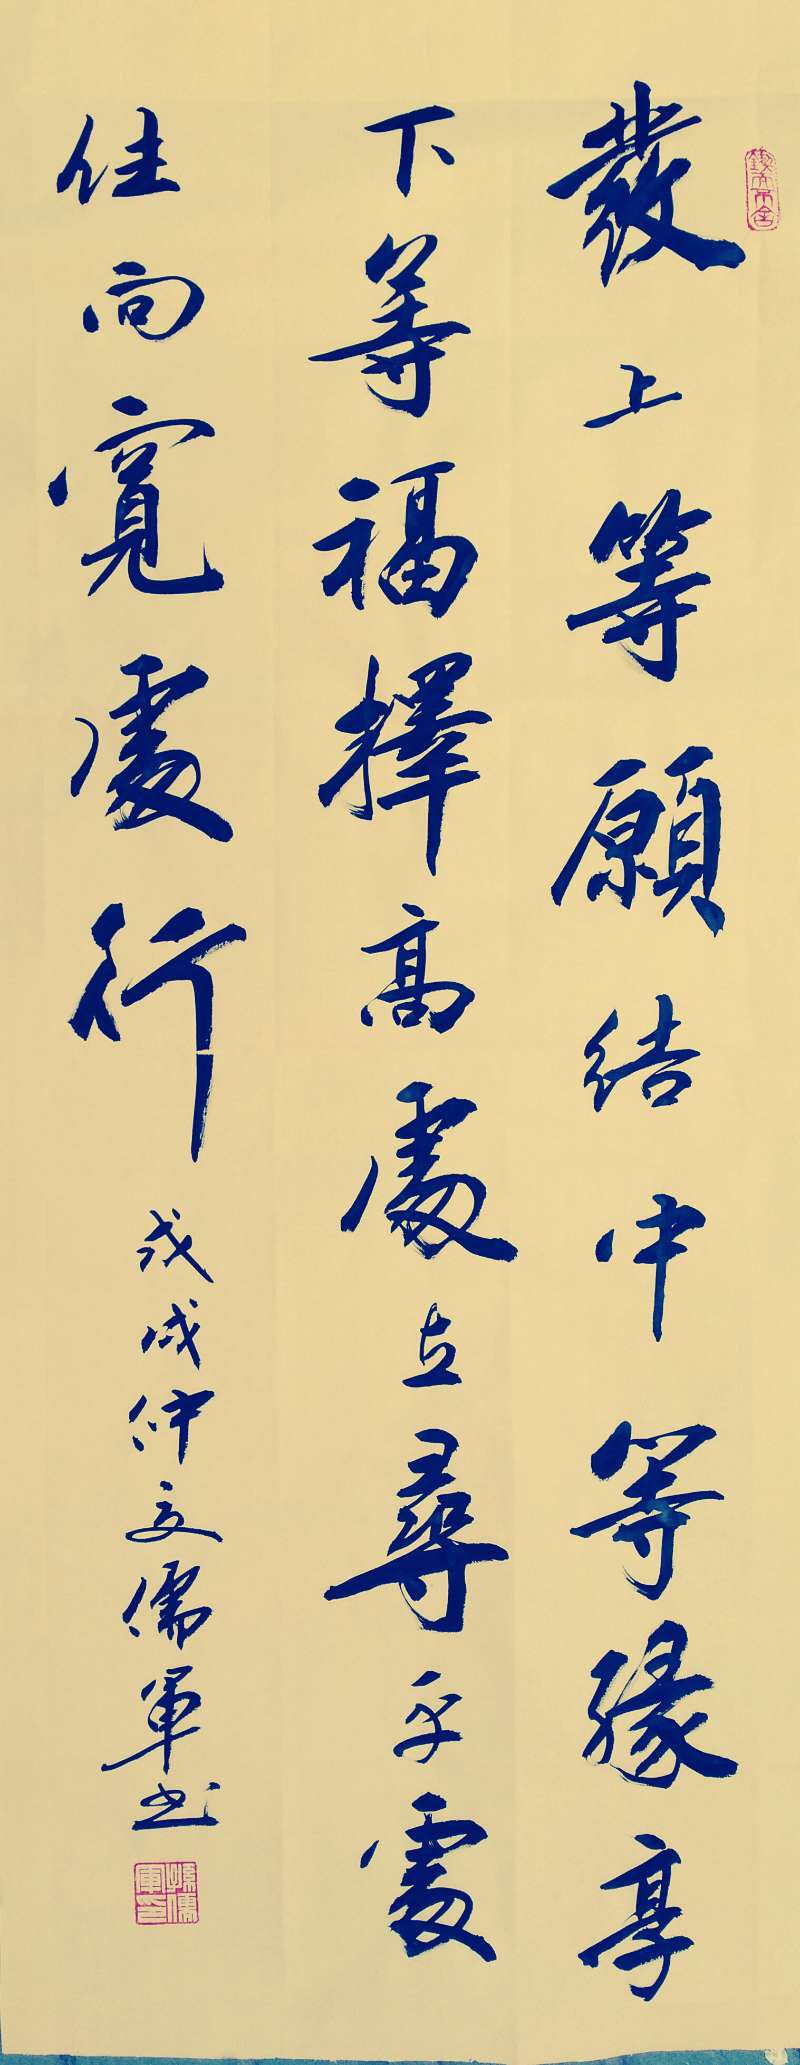 發上等願結中等緣享
下等福擇高處立尋平處
住向寬處行
戊戌仲夏儒軍书
孫儒軍印